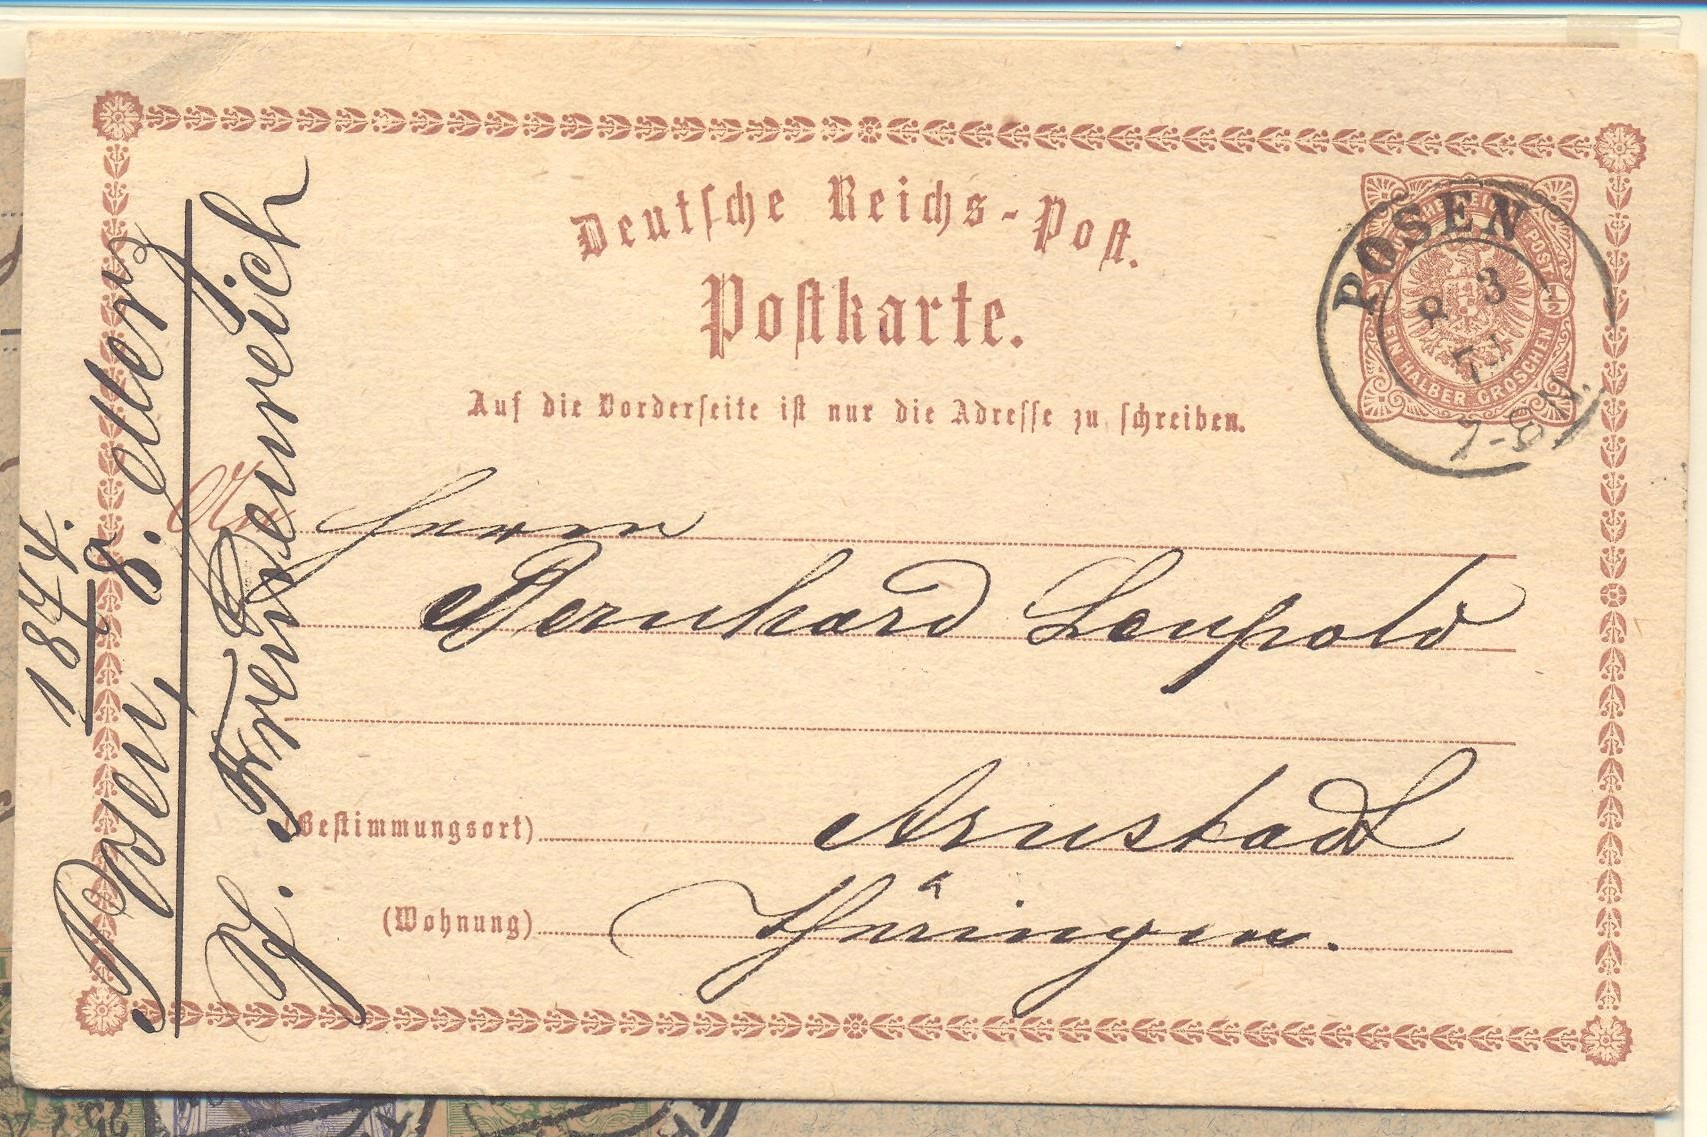 Deutsche Reichs-Post.
Postkarte.
Auf die Vorderseite ist nur die Adresse zu schreiben.
DEUTSCHE REICHS-POST
1/2 EIN HALBER GROSCHEN 1/2
POSEN
8 3
74
7-8 N.
An Herrn
Bernhard Leupold
(Bestimmungsort) Arnstadt
(Wohnung) Thüringen.
1874.
Posen, 8. Merz
H. Freudenreich